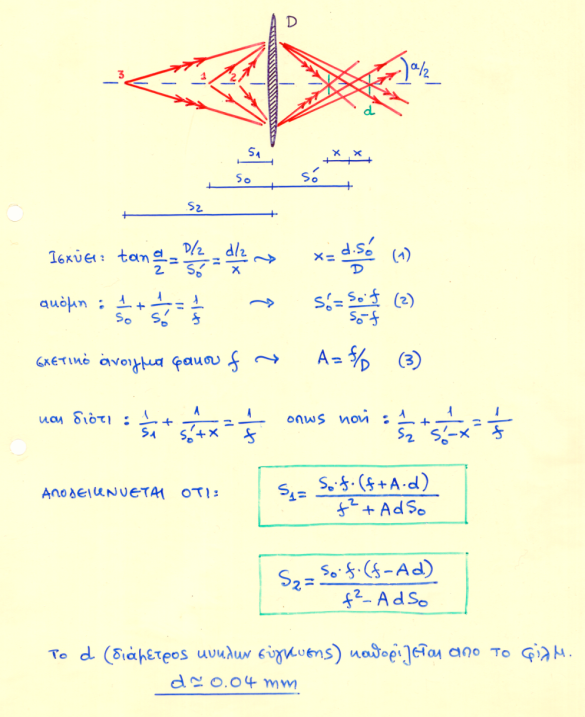 D
3 1 2 α/2
d
S₁ x x
S₀ S₀'
S₂
Ισχύει: tan α/2 = (D/2)/S₀' = (d/2)/x ⤳ x = d·S₀'/D (1)
ακόμη : 1/S₀ + 1/S₀' = 1/f ⤳ S₀' = S₀·f/(S₀-f) (2)
σχετικό άνοιγμα φακου f ⤳ A = f/D (3)
και διότι : 1/S₁ + 1/(S₀'+x) = 1/f οπως και : 1/S₂ + 1/(S₀'-x) = 1/f
ΑΠΟΔΕΙΚΝΥΕΤΑΙ ΟΤΙ: S₁ = S₀·f·(f+A·d)/(f²+AdS₀)
S₂ = S₀·f·(f-Ad)/(f²-AdS₀)
Το d (διάμετρος κυκλων σύγχυσης) καθορίζεται απο το φιλμ.
d ≃ 0.04 mm